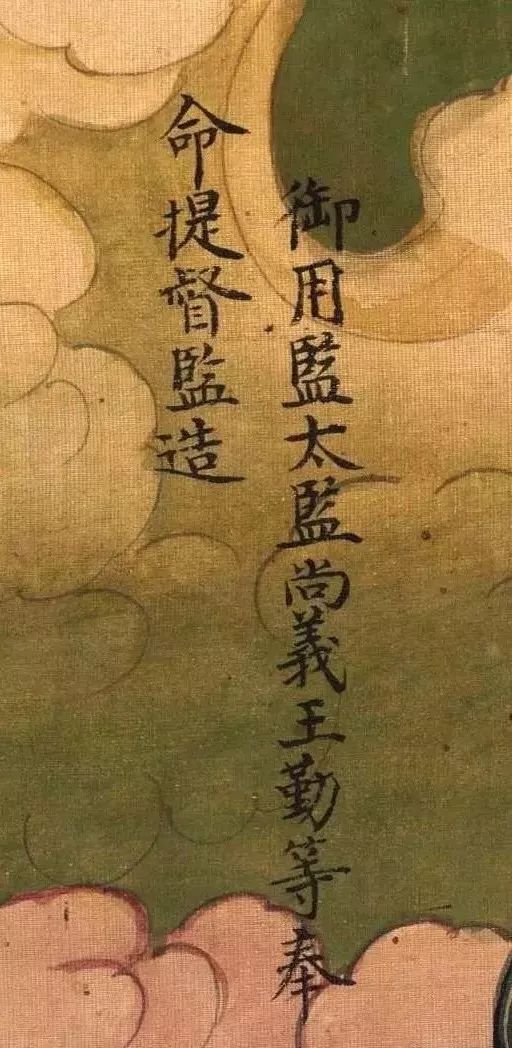 御用監太監尚義王勤等奉
命提督監造